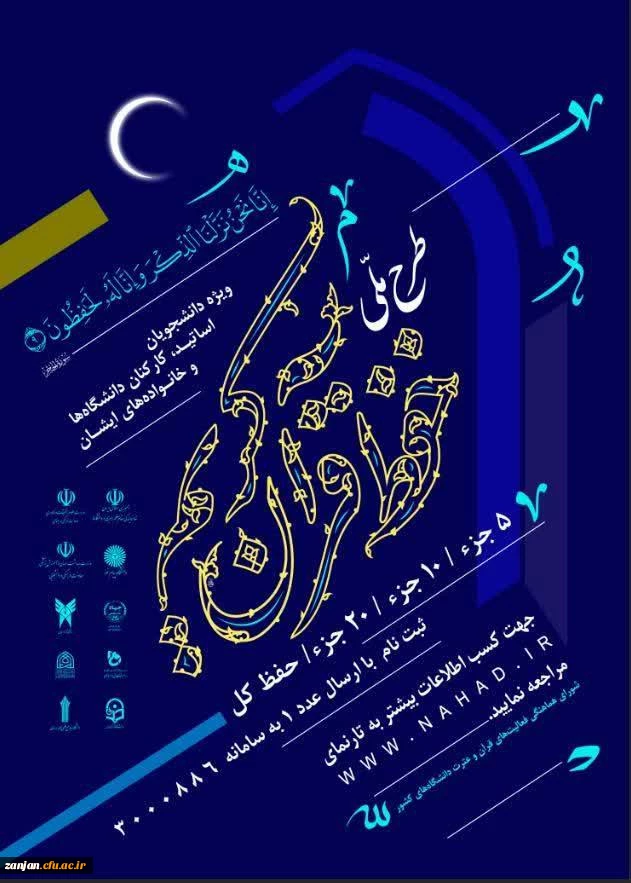 إِنَّا نَحْنُ نَزَّلْنَا ٱلذِّكْرَ وَإِنَّا لَهُۥ لَحَٰفِظُونَ ٩
طرح ملّی
حفظ قرآن کریم
ویژه دانشجویان
اساتید، کارکنان دانشگاه‌ها
و خانواده‌های ایشان
۵ جزء / ۱۰ جزء / ۲۰ جزء / حفظ کل
ثبت نام با ارسال عدد ۱ به سامانه ۳۰۰۰۸۸۶
جهت کسب اطلاعات بیشتر به تارنمای
WWW.NAHAD.IR
مراجعه نمایید.
شورای هماهنگی فعالیت‌های قرآن و عترت دانشگاه‌های کشور
zanjan.cfu.ac.ir